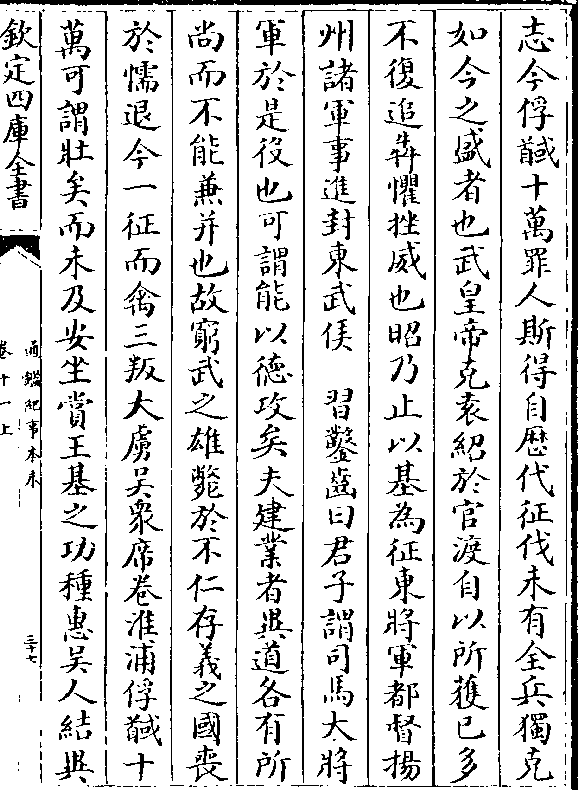 志今俘馘十萬罪人斯得自歴代征伐未有全兵獨克
如今之盛者也武皇帝克袁紹於官渡自以所獲已多
不復追犇懼挫威也昭乃止以基為征東將軍都督揚
州諸軍事進封東武侯　習鑿齒曰君子謂司馬大將
軍於是役也可謂能以德攻矣夫建業者異道各有所
尚而不能兼并也故窮武之雄斃於不仁存義之國喪
於懦退今一征而禽三叛大虜吳衆席卷淮浦俘馘十
萬可謂壯矣而未及安坐賞王基之功種惠吳人結異
欽定四庫全書
通鑑紀事本末
卷十一上
三十七